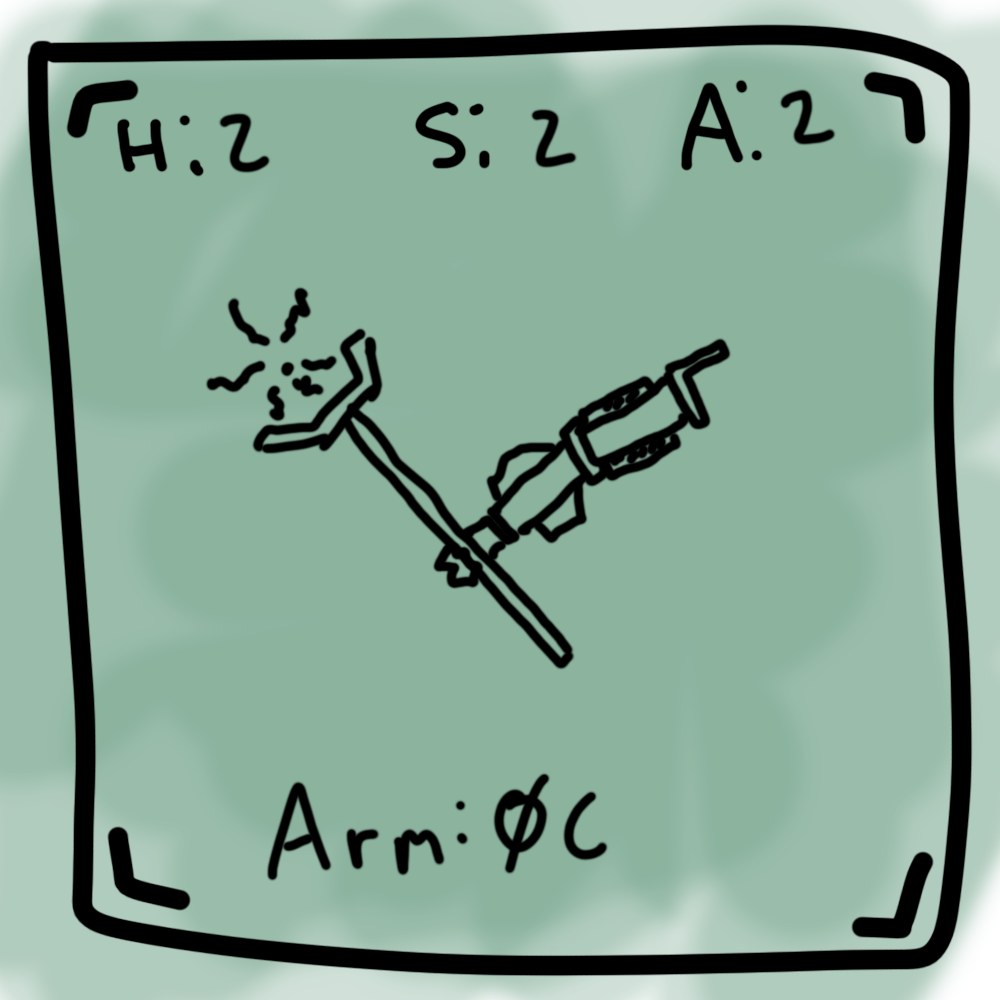 H:2 S:2 A:2
Arm:ØC